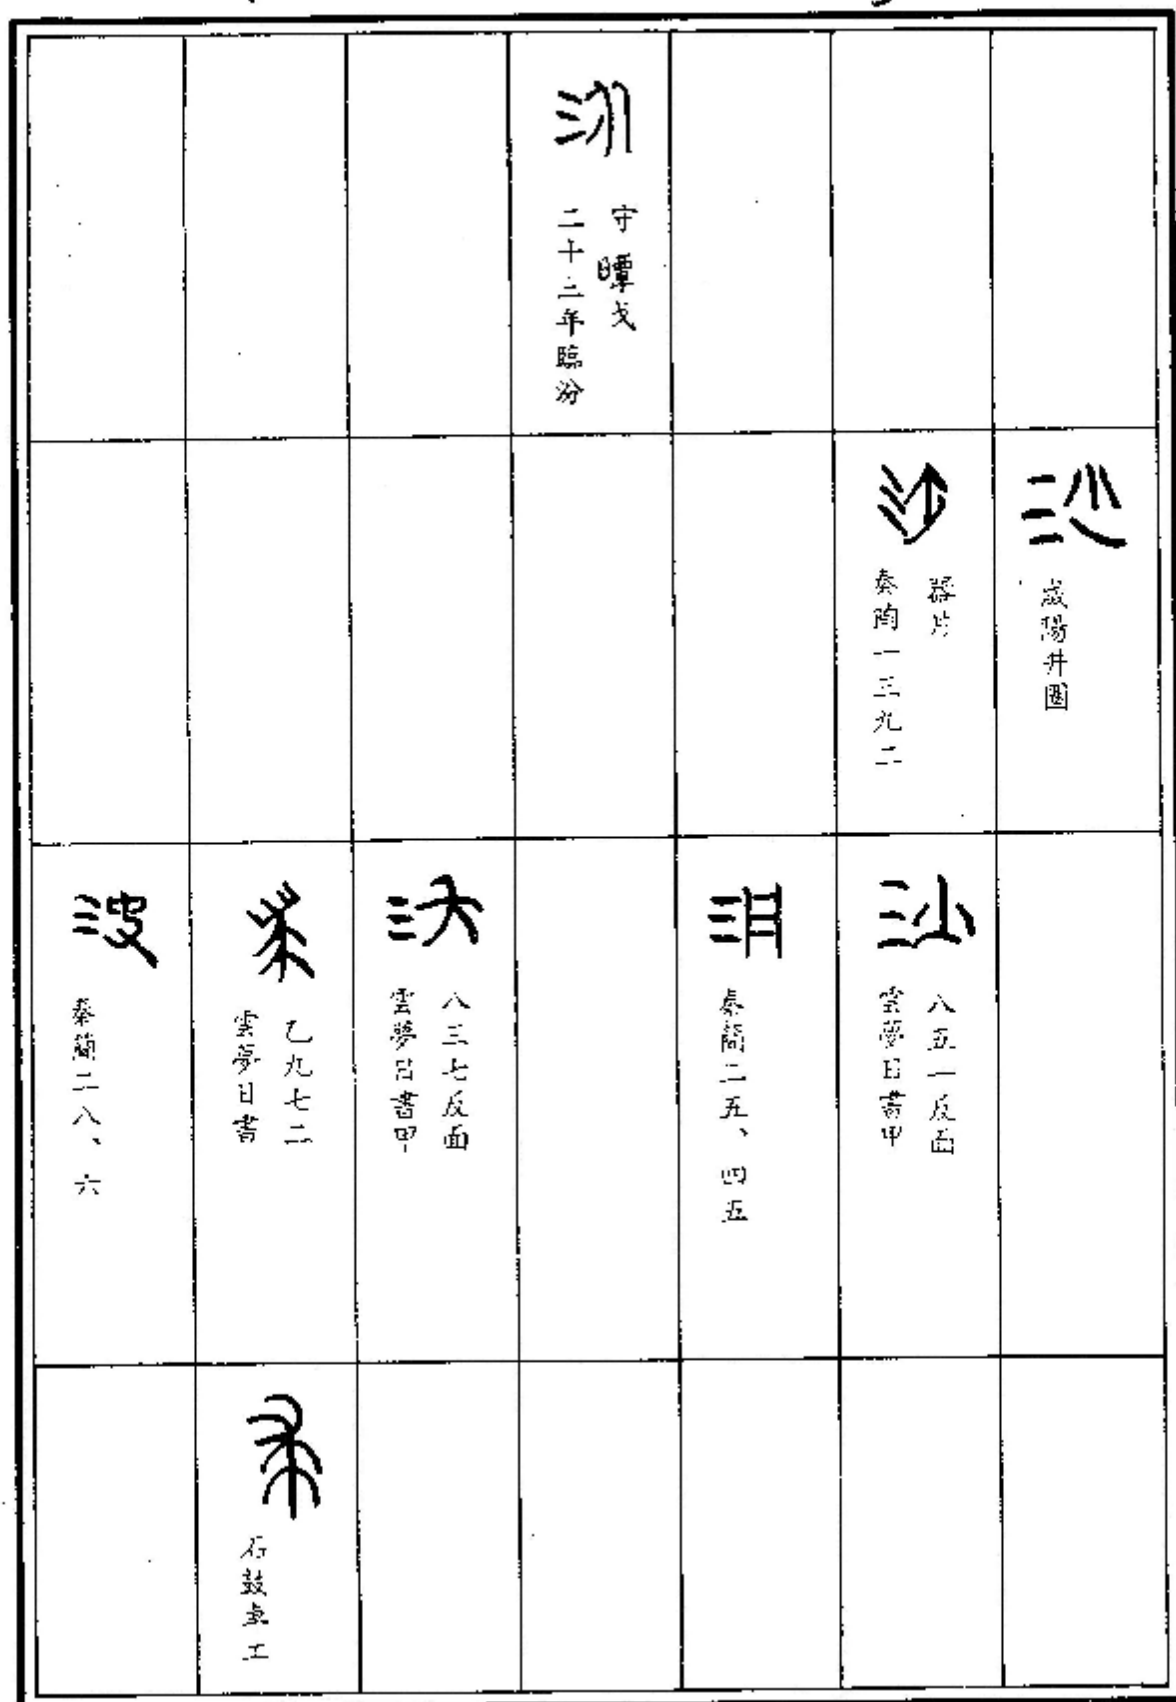 汾
二十二年臨汾
守曋戈
沙
咸陽井圈
秦陶一三九二
器片
沙
雲夢日書甲
八五一反面
沮
秦簡二五、四五
雲夢日書甲
八三七反面
雲夢日書
乙九七二
波
秦簡二八、六
石鼓車工